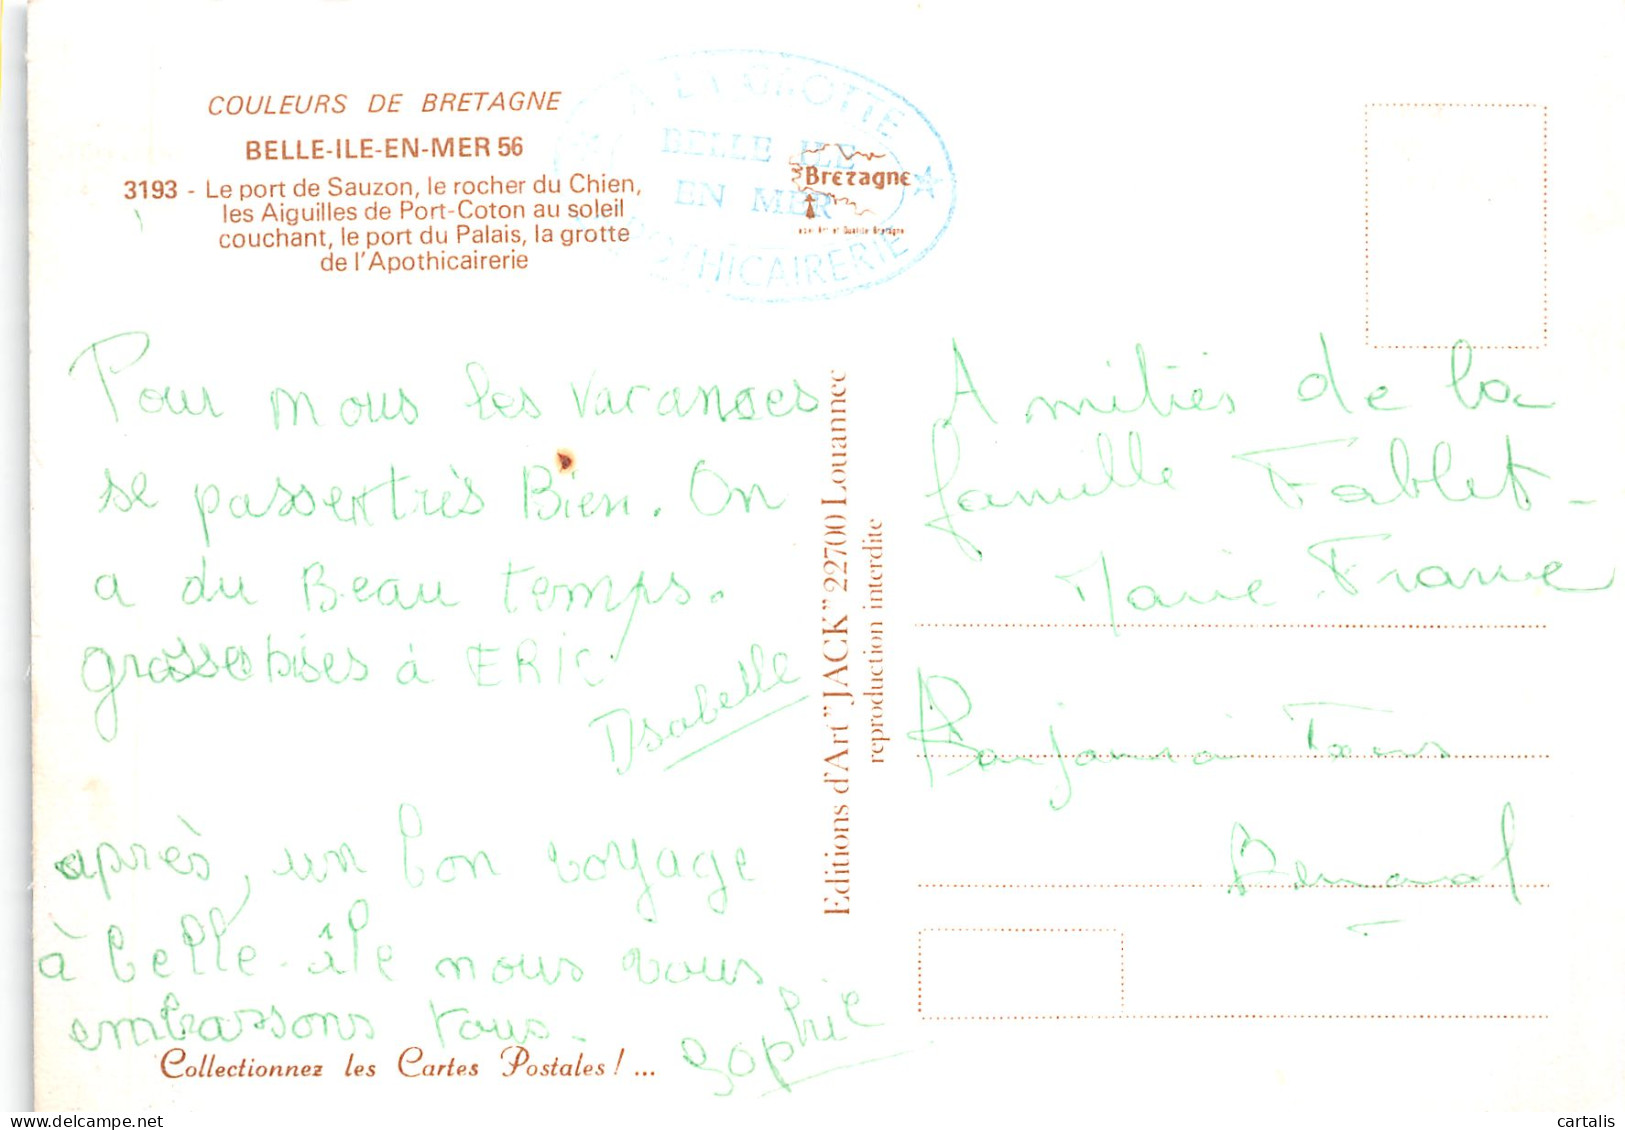 COULEURS DE BRETAGNE
BELLE-ILE-EN-MER 56
3193 - Le port de Sauzon, le rocher du Chien,
les Aiguilles de Port-Coton au soleil
couchant, le port du Palais, la grotte
de l'Apothicairerie
LA GROTTE
BELLE ILE
EN MER
APOTHICAIRERIE
Bretagne
Pour nous les vacances
se passent très Bien. On
a du Beau temps.
grosses bises à ERIC
Isabelle
après, un bon voyage
à belle-île nous vous
embrassons tous.
Sophie
Collectionnez les Cartes Postales ! ...
Editions d'Art "JACK" 22700 Louannec
reproduction interdite
Amitiés de la
famille Fablet -
Marie-France
Benjamin
cartalis